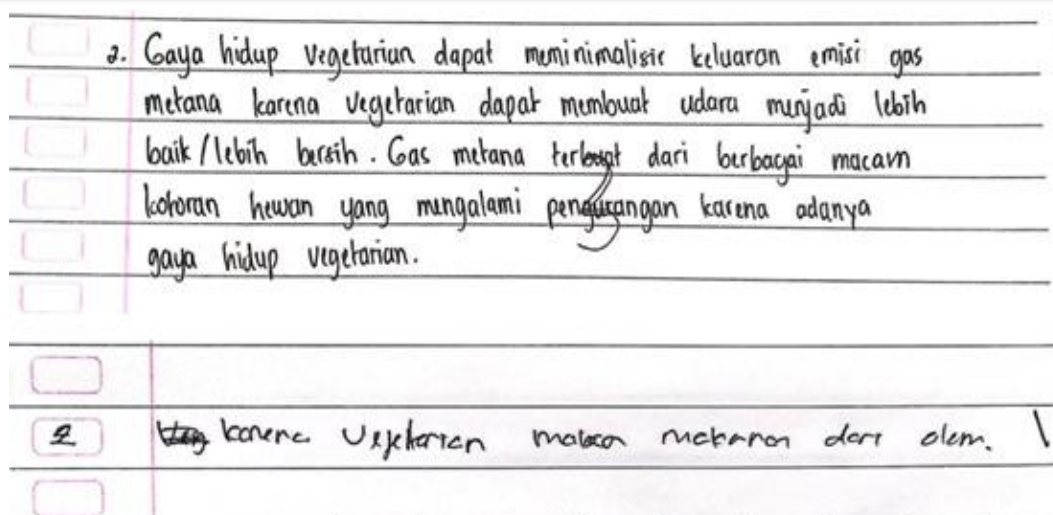 2. Gaya hidup vegetarian dapat meminimalisir keluaran emisi gas
metana karena vegetarian dapat membuat udara menjadi lebih
baik / lebih bersih. Gas metana terbuat dari berbagai macam
kotoran hewan yang mengalami pengurangan karena adanya
gaya hidup vegetarian.
2 karena vegetarian makan makanan dari alam.